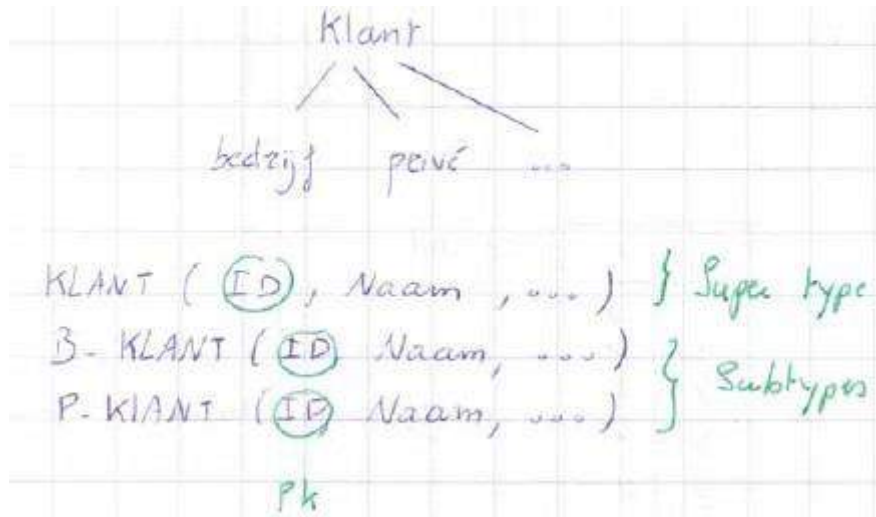 Klant
bedrijf privé ...
KLANT ( ID, Naam, ... ) } Super type
B-KLANT ( ID, Naam, ... )
} Subtypes
P-KLANT ( ID, Naam, ... )
Pk